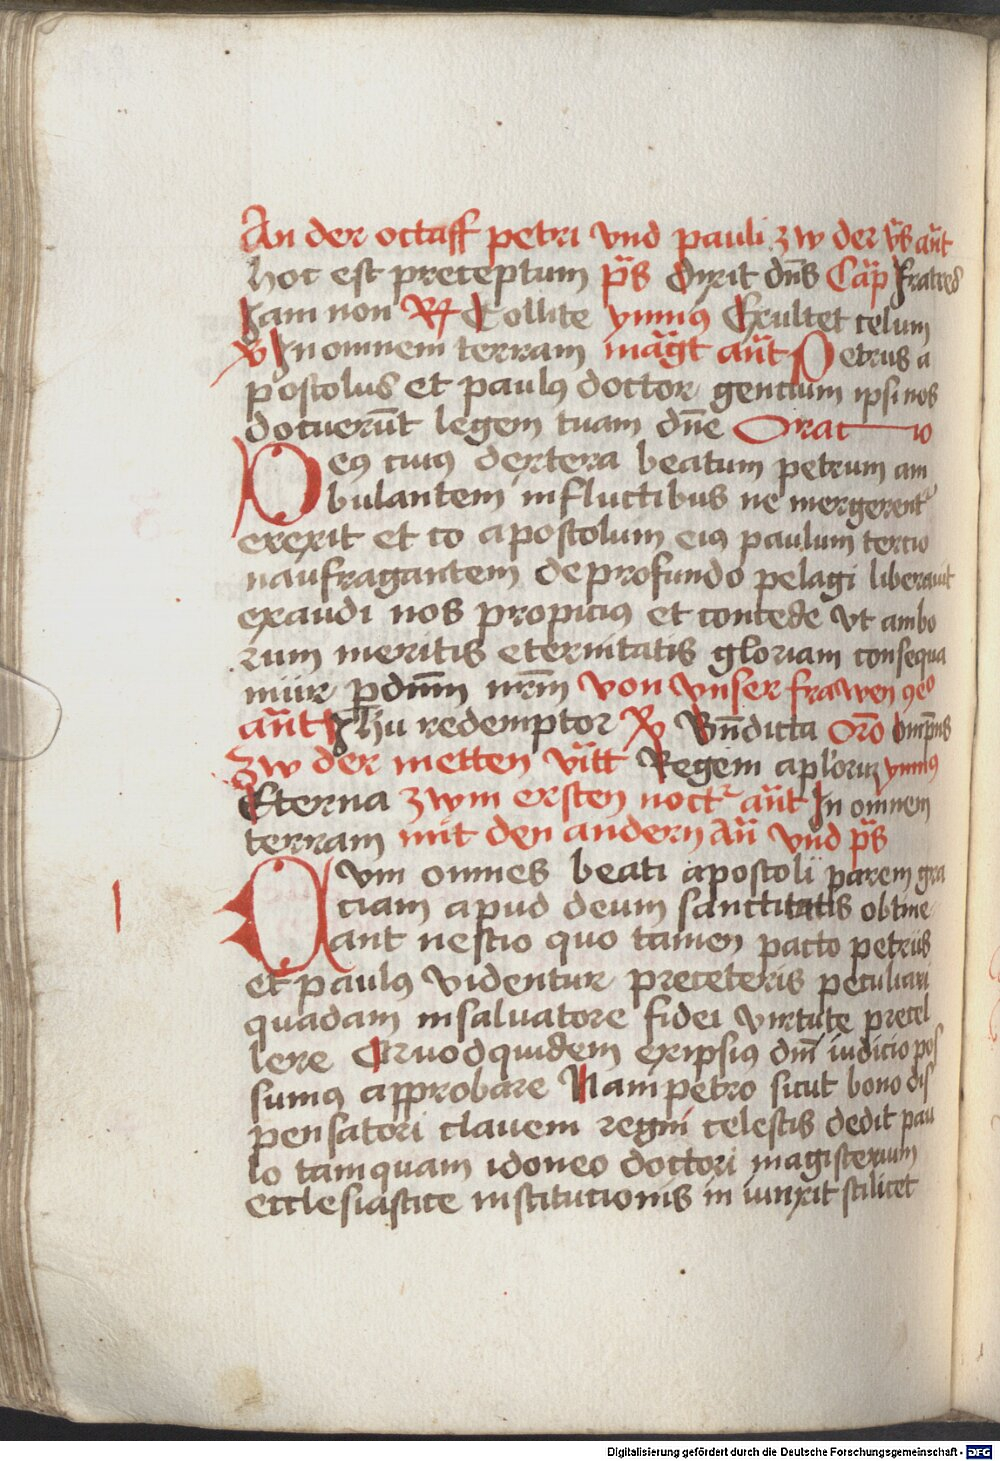 An der octaff petri vnd pauli zw der v̄s ant̄
hoc est preceptum ps̄ Dixit dn̄s Cap̄ Fratres
Iam non R Tollite ymnus Exultet celum
V In omnem terram maḡt ant̄ Petrus a
postolus et paulus doctor gencium ipsi nos
docuerūt legem tuam dn̄e Orat io
Deus cuius dextera beatum petrum am
bulantem in fluctibus ne mergerent᷑
erexit et co apostolum eius paulum tercio
naufragantem de profundo pelagi liberauit
exaudi nos propicius et concede vt ambo
rum meritis eternitatis gloriam consequa
mur p dnm̄ nrm̄ von vnser frawen
ant̄ Ihu redemptor V Bn̄dicta Oro
zw der metten vitt Regem aplorum ymnus
Eterna zwm ersten noct᷑ ant̄ In omnem
terram mit den andern an̄ vnd ps̄
Cum omnes beati apostoli parem gra
ciam apud deum sanctitatis obtine
ant nescio quo tamen pacto petrus
et paulus videntur preceteris peculiari
quadam in saluatore fidei virtute precel
lere Quod quidem ex ipsius dnī iudicio pos
sumus approbare Nam petro sicut bono dis
pensatori clauem regni celestis dedit pau
lo tamquam idoneo doctori magisterium
ecclesiastice institucionis in iunxit scilicet
Digitalisierung gefördert durch die Deutsche Forschungsgemeinschaft - DFG